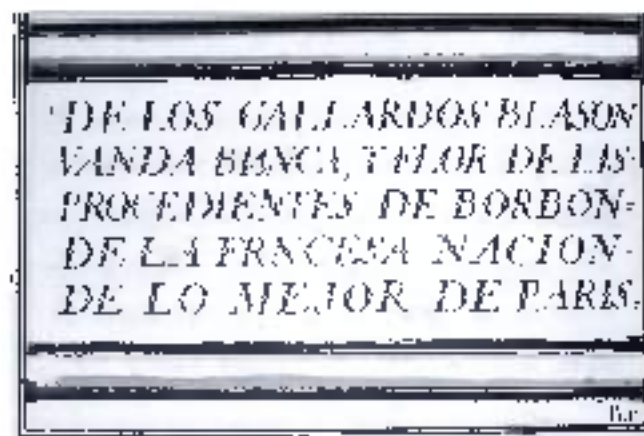 DE LOS GALLARDOS BLASON
VANDA BLANCA, Y FLOR DE LIS
PROCEDIENTES DE BORBON=
DE LA FRNCESA NACION=
DE LO MEJOR DE PARIS